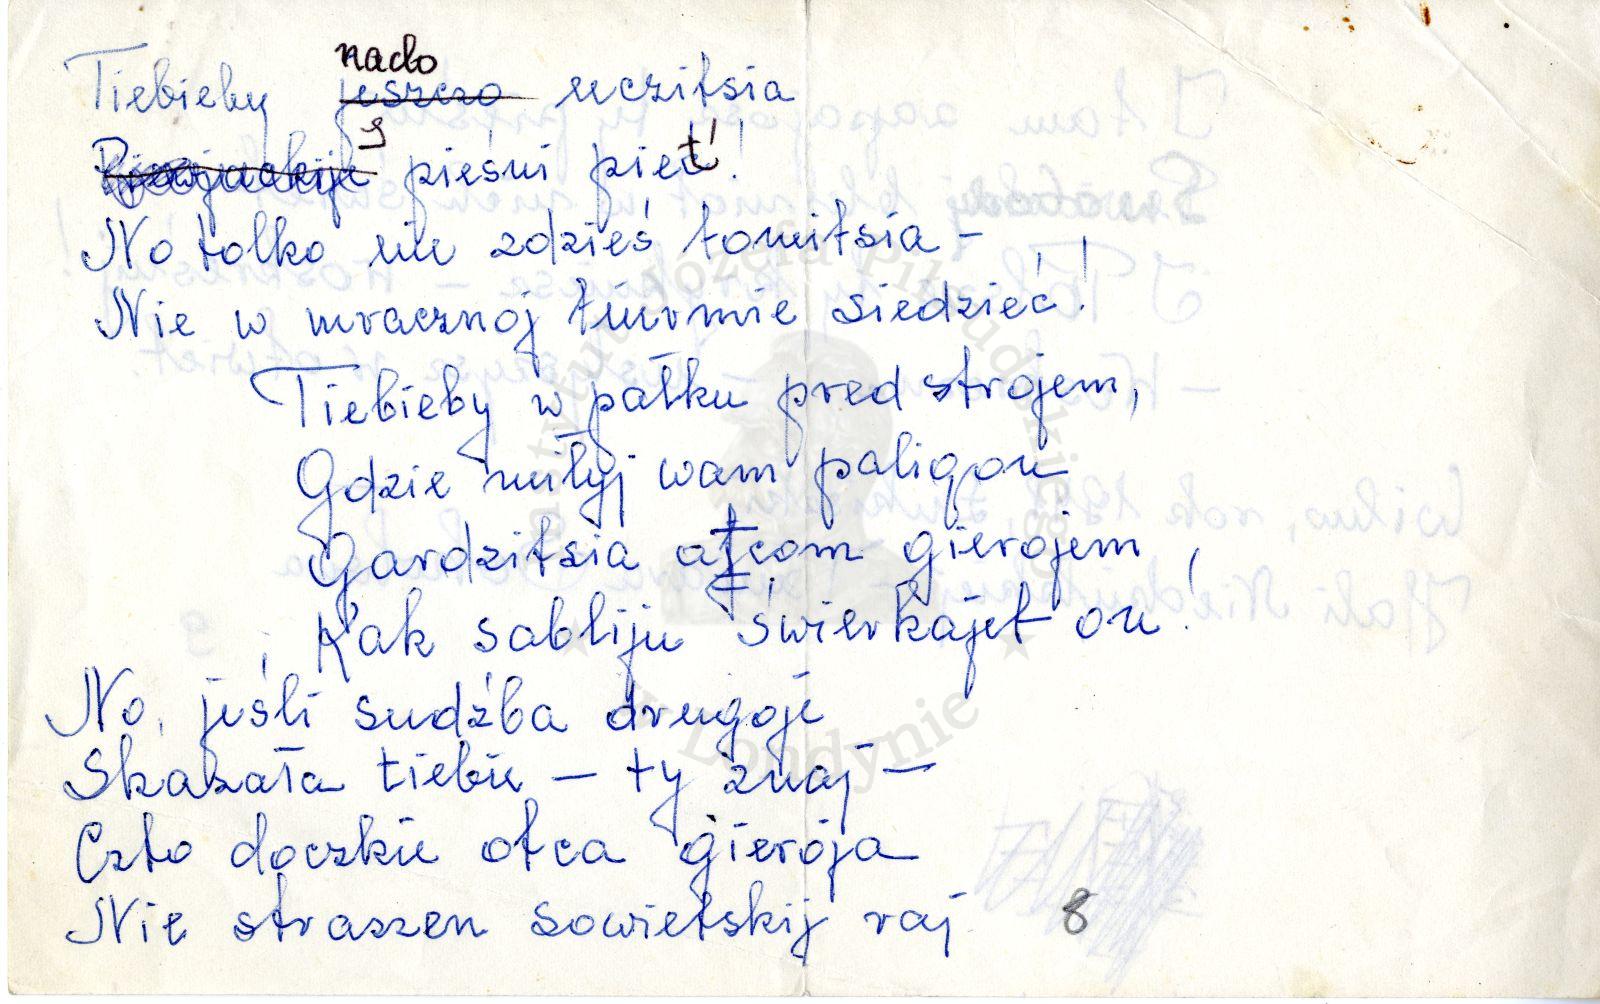 nado
Tiebieby jeszczo uczitsia
I pieśni pieť!
No tolko nie zdzieś tomitsia –
Nie w mracznoj tiurmie siedzieć!
Tiebieby w pałku pred strojem,
Gdzie miłyj wam paligon
Gardzitsia atcom gierojem,
Kak sabliju świerkajet on!
No, jeśli sudźba drugoje
Skazała tiebie – ty znaj –
Czto doczkie otca gieroja
Nie straszen sowietskij raj
8
Instytut Józefa Piłsudskiego
Londynie